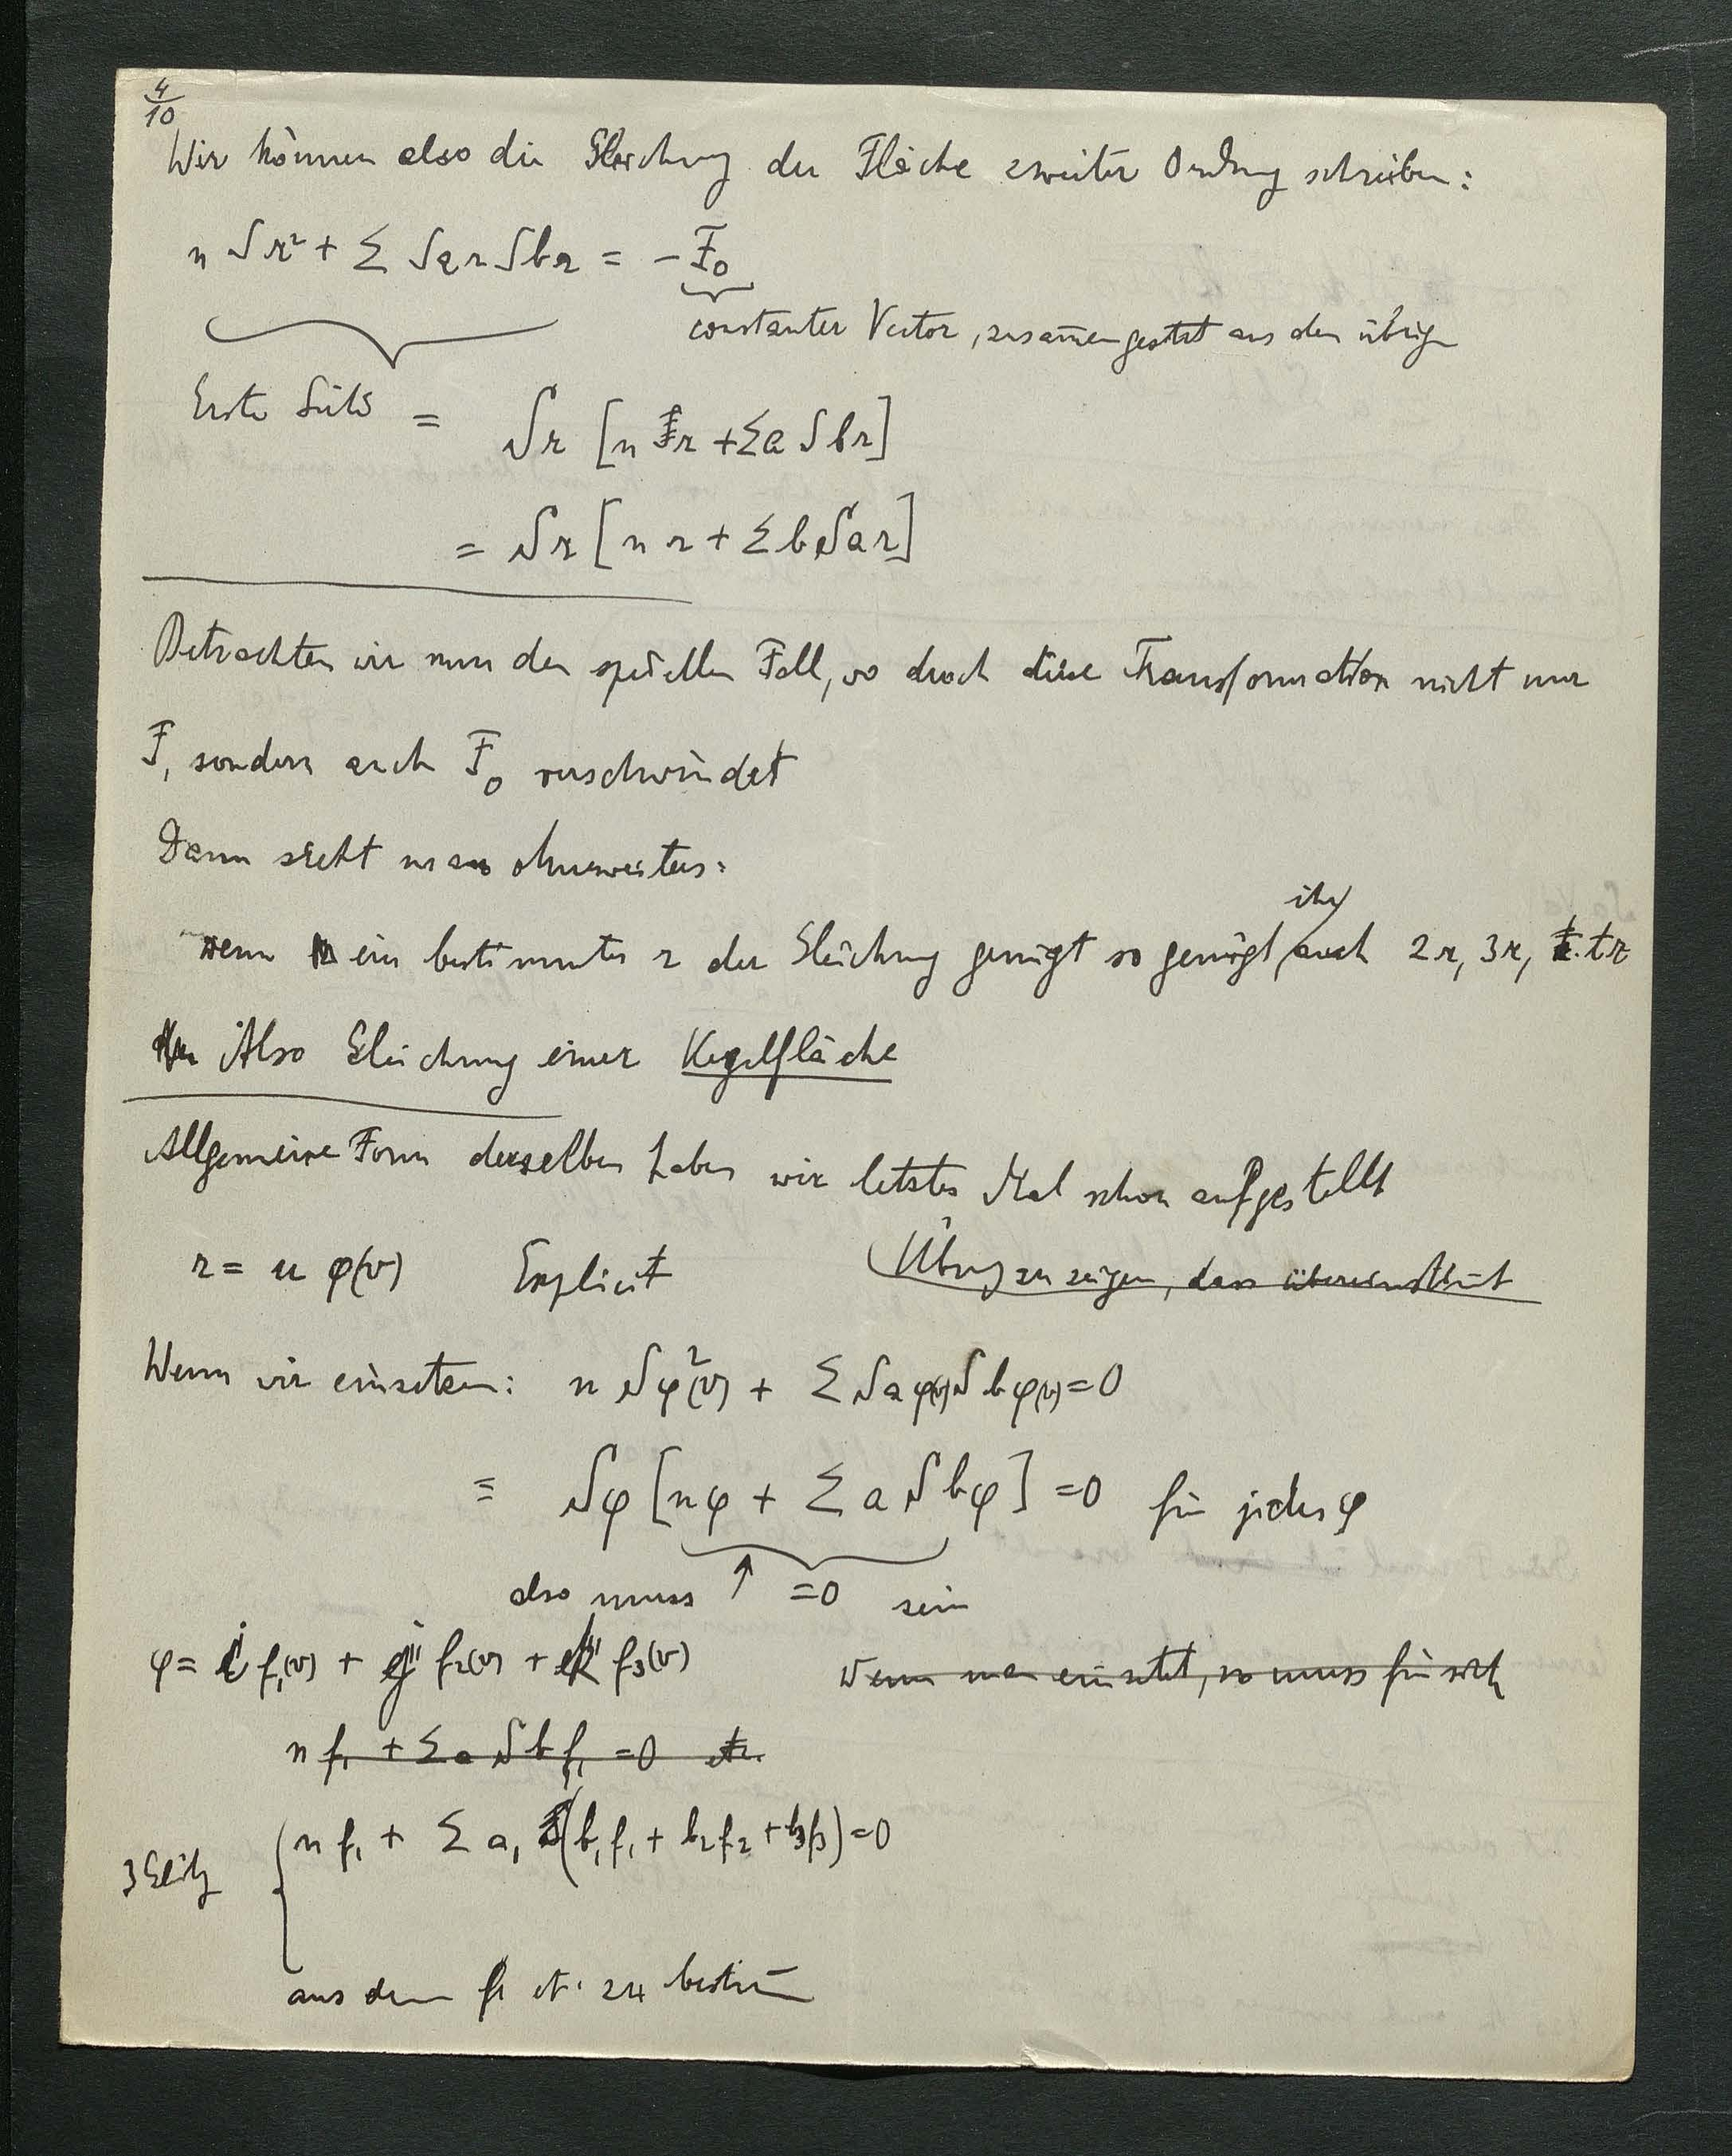 4/10
Wir können also die Gleichung der Fläche zweiter Ordnung schreiben:
n Sr² + Σ Sar Sbr = - F₀
constanter Vector, zusam̄engesetzt aus den übrigen
Erste Seite = Sr [n r + Σa Sbr]
= Sr [n r + Σ b Sar]
Betrachten wir nun den speciellen Fall, wo durch diese Transformation nicht nur
F₁ sondern auch F₀ verschwindet
Dann sieht man ohneweiters:
wenn ein bestimmter r der Gleichung genügt so genügt ihr auch 2r, 3r, tr
Also Gleichung einer Kegelfläche
Allgemeine Form derselben haben wir letztes Mal schon aufgestellt
r = u φ(v) Explicit Übung zu zeigen, dass übereinstimmt
Wenn wir einsetzen: n Sφ²(v) + Σ Saφ(v) Sbφ(v) = 0
≡ Sφ [nφ + Σ a Sbφ] = 0 für jedes φ
also muss ↑ = 0 sein
φ = i f₁(v) + j f₂(v) + k f₃(v) Wenn man einsetzt, so muss für sich
n f₁ + Σ a S b f₁ = 0 etc.
3 Gleichg { n f₁ + Σ a₁ (b₁f₁ + b₂f₂ + b₃f₃) = 0
aus denen f₁ etc. zu bestim̄